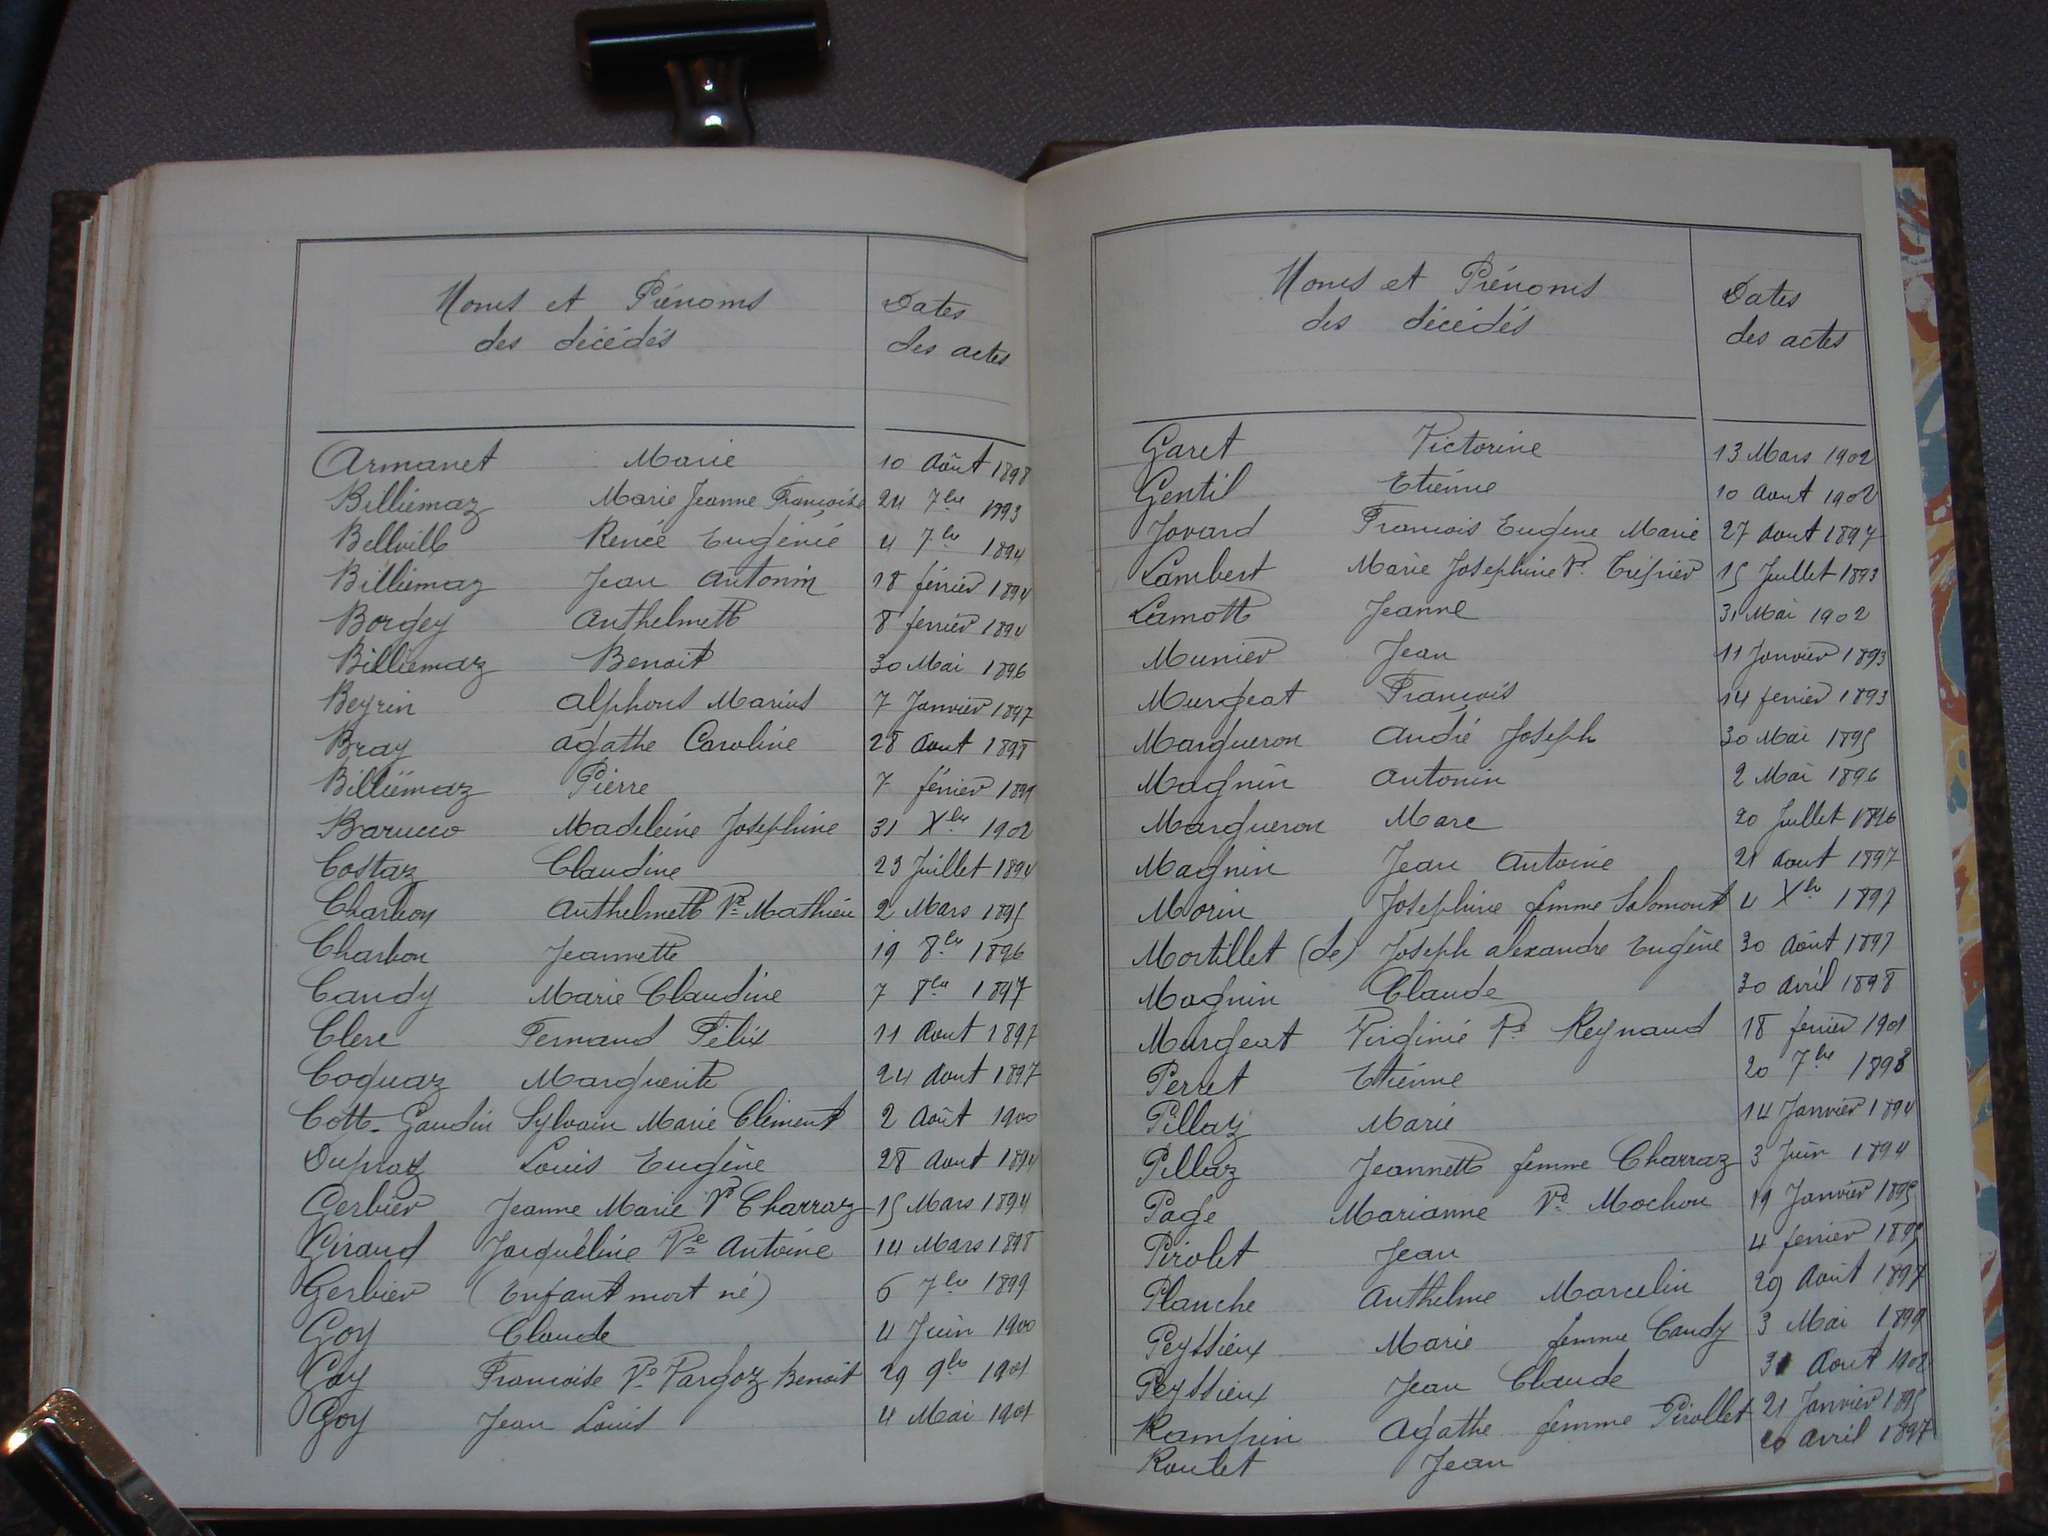 Noms et Prénoms
des décédés
Dates
des actes
Armanet Marie 10 Août 1898
Billiémaz Marie Jeanne Françoise 24 7bre 1893
Bellville Renée Eugénie 4 7bre 1894
Billiémaz Jean Antonin 18 février 1894
Borgey Anthelmette 8 fevrier 1894
Billiemaz Benoit 30 Mai 1896
Beyrin Alphons Marius 7 Janvier 1897
Bray Agathe Caroline 28 Aout 1898
Billiémaz Pierre 7 février 1899
Barucco Madeleine Josephine 31 Xbre 1902
Costaz Claudine 23 Juillet 1894
Charbon Anthelmette Ve Mathieu 2 Mars 1895
Charbon Jeannette 19 8bre 1896
Candy Marie Claudine 7 8bre 1897
Clerc Fernand Félix 11 Aout 1897
Coquaz Marguerite 24 Aout 1897
Cott-Gaudin Sylvain Marie Clément 2 Août 1900
Dupraz Louis Eugène 28 Aout 1894
Gerbier Jeanne Marie Ve Charraz 15 Mars 1894
Giraud Jacquéline Ve Antoine 14 Mars 1898
Gerbier (Enfant mort né) 6 7bre 1899
Goy Claude 4 Juin 1900
Goy Francoise Ve Pargoz Benoit 29 9bre 1901
Goy Jean Louis 4 Mai 1901
Noms et Prénoms
des décédés
Dates
des actes
Garet Victorine 13 Mars 1902
Gentil Etienne 10 Aout 1902
Jovard Francois Eugene Marie 27 Aout 1897
Lambert Marie Josephine Ve Trépier 15 Juillet 1893
Lamotte Jeanne 31 Mai 1902
Munier Jean 11 Janvier 1893
Murgeat François 14 fevrier 1893
Margueron André Joseph 30 Mai 1895
Magnin Antonin 2 Mai 1896
Margueron Marc 20 Juillet 1896
Magnin Jean Antoine 21 Aout 1897
Morin Josephine femme Salomont 4 Xbre 1897
Mortillet (de) Joseph Alexandre Eugène 30 Août 1897
Magnin Claude 30 Avril 1898
Murgeat Virginie Ve Reynaud 18 fevrier 1901
Perret Etienne 20 7bre 1893
Pillaz Marie 14 Janvier 1894
Pillaz Jeannette femme Charraz 3 Juin 1894
Page Marianne Ve Mochon 19 Janvier 1895
Pirolet Jean 4 fevrier 1895
Planche Anthelme Marcelin 29 Août 1897
Peyssieux Marie femme Candy 3 Mai 1899
Peyssieux Jean Claude 31 Aout 1902
Rampin Agathe femme Pirollet 21 Janvier 1895
Roulet Jean 20 Avril 1897